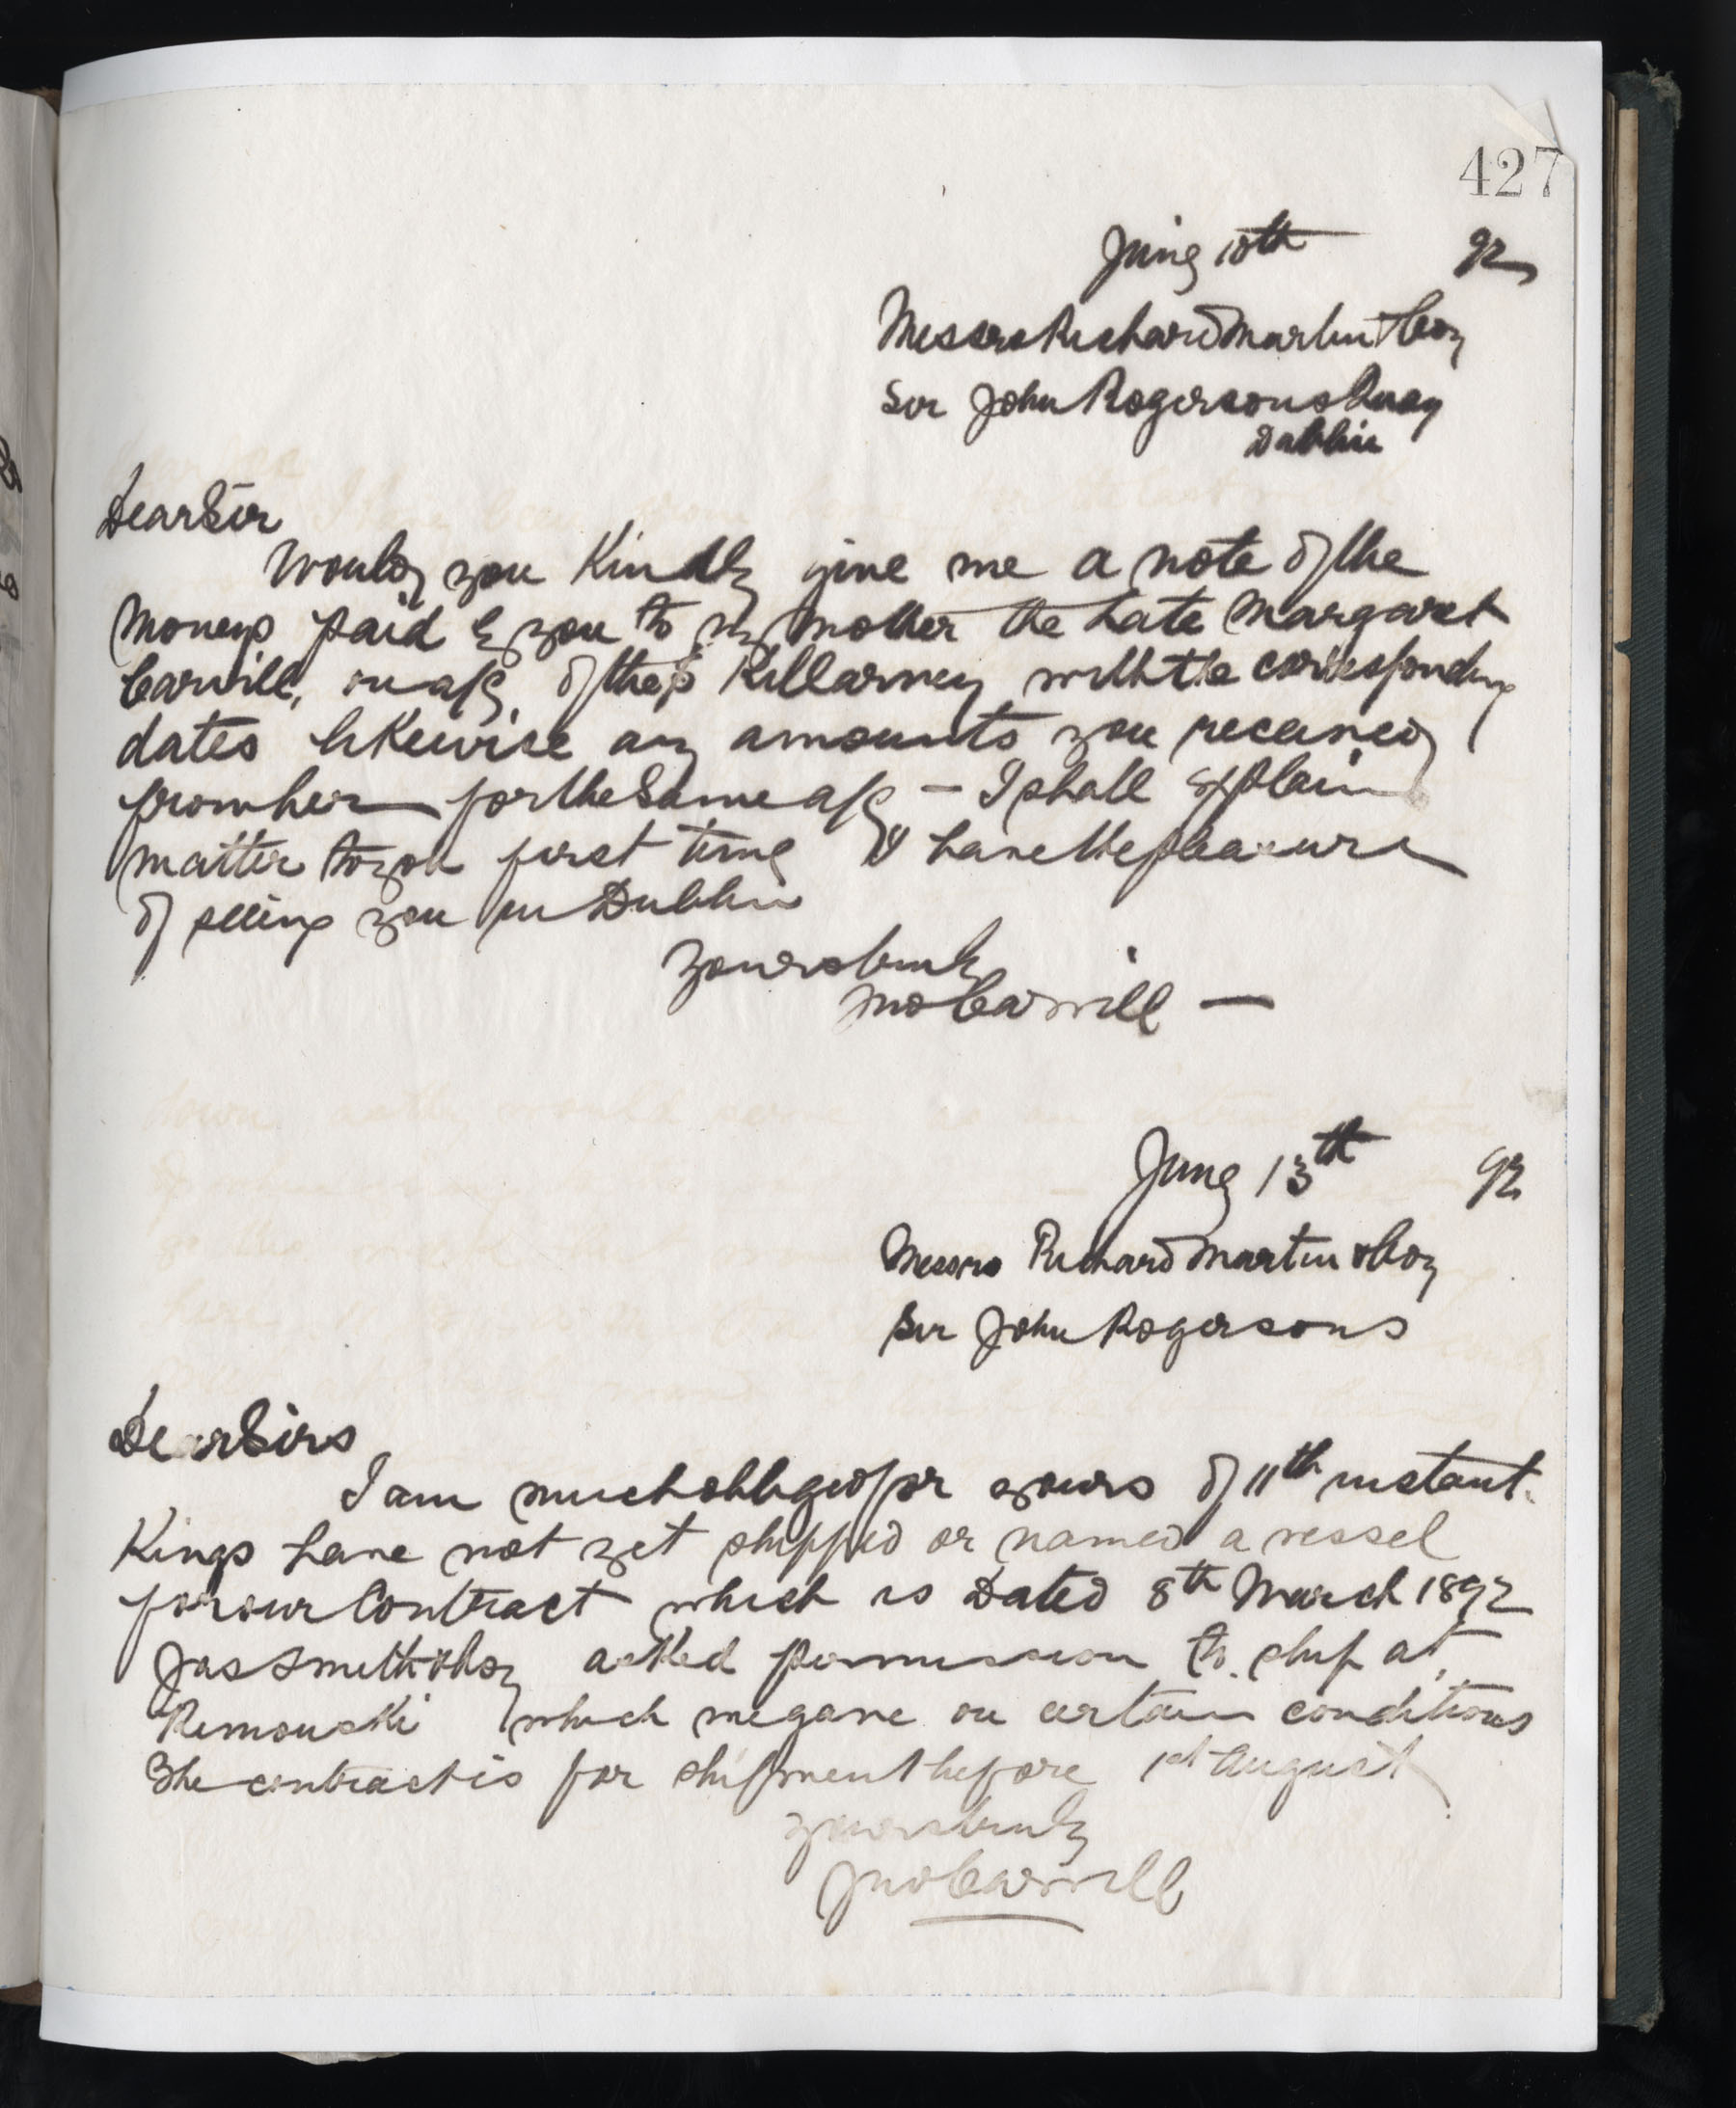 427
June 10th 92
Messrs Richard Martin & Coy
Sir John Rogersons Quay
Dublin
Dear Sir
Would you Kindly give me a note of the
moneys paid by you to my mother the late Margaret
Carvill, on a/c of the S Killarney with the corresponding
dates likewise any amounts you received
from her for the same a/c - I shall explain
matter to you first time I have the pleasure
of seeing you in Dublin
Yours truly
Jno Carvill —
June 13th 92
Messrs Richard Martin & Coy
Sir John Rogersons
Dear Sirs
I am much obliged for yours of 11th instant.
Kings have not yet shipped or named a vessel
for our Contract which is Dated 8th March 1892
Jas Smith & Coy asked permission to ship at
Rimouski which we gave on certain conditions
The contract is for shipment before 1st August
Yours truly
Jno Carvill